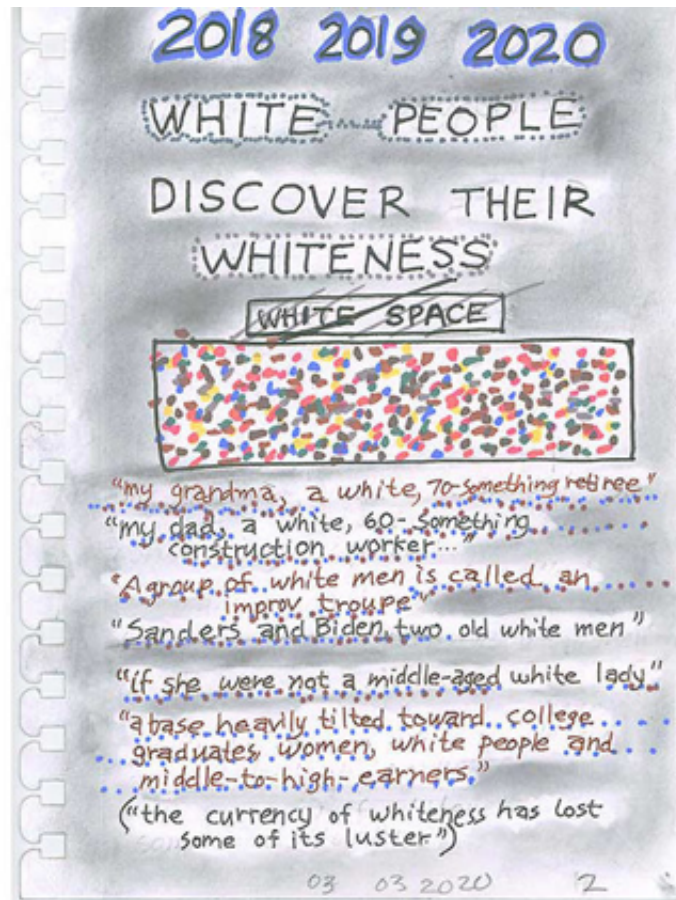 2018 2019 2020
WHITE PEOPLE
DISCOVER THEIR
WHITENESS
WHITE SPACE
"my grandma, a white, 70-something retiree"
"my dad, a white, 60-something
construction worker..."
"A group of white men is called an
improv troupe"
"Sanders and Biden, two old white men"
"if she were not a middle-aged white lady"
"a base heavily tilted toward college
graduates, women, white people and
middle-to-high-earners."
("the currency of whiteness has lost
some of its luster")
03 03 2020 2